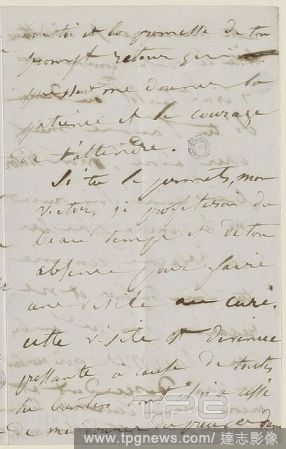 de toi et la promesse de ton
prompt retour qui
puissent me donner la
patience et le courage
de t'attendre.
Si tu le permets, mon
Victor, je profiterai du
beau temps et de ton
absence pour faire
une visite au curé.
cette visite est devenue
pressante à cause de toutes
les
de me donner
TPG
www.tpgnews.com / 達志影像